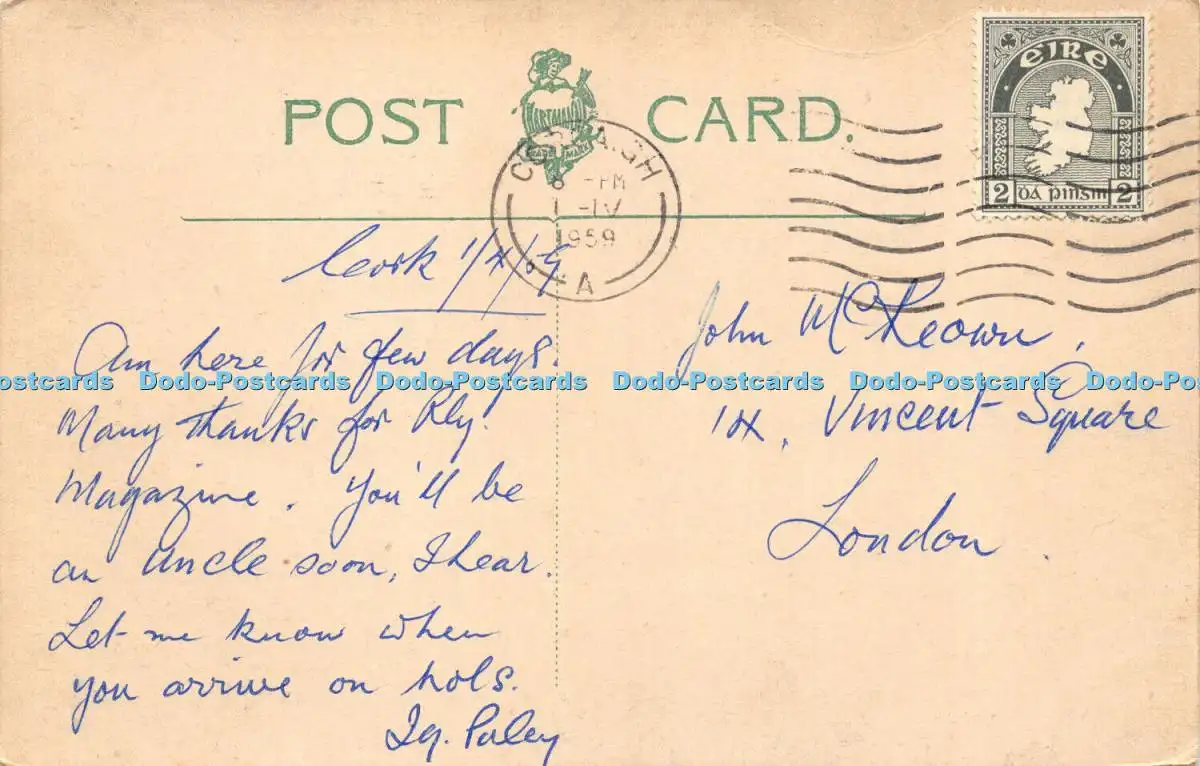 POST CARD.
HARTMANN
TRADE MARK
EIRE
2 DÁ PINGIN 2
CORCAIGH
8 -PM
1 -IV
1959
A
Cork 1/4/59
Am here for few days.
Many thanks for Rly.
Magazine. You'll be
an Uncle soon, I hear.
Let me know when
you arrive on hols.
John McKeown,
Vincent Square
London.
Dodo-Postcards Dodo-Postcards Dodo-Postcards Dodo-Postcards Dodo-Postcards Dodo-Po